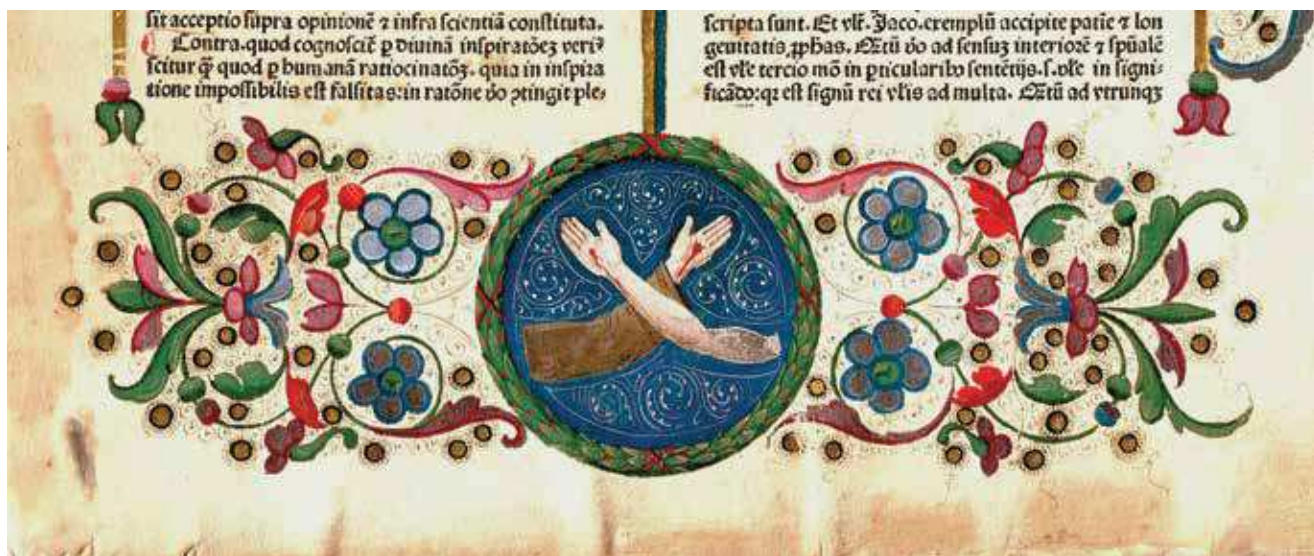 sit acceptio supra opinionē ⁊ infra scientiā constituta.
Contra. quod cognoscit̄ ꝑ diuinā inspiratōeꝫ veriꝰ
scitur ꝙ̄ quod ꝑ humanā ratiocinatōꝫ. quia in inspira
tione impossibilis est falsitas: in ratōne ꝟo ↄtingit ple⸗
scripta sunt. Et vl̄r. Jaco. exemplū accipite patiē ⁊ lon
geuitatis ꝓphas. Ꝙ̄tū ꝟo ad sensuꝫ interiorē ⁊ spūalē
est vl̄e tercio mō in ꝑticularibꝰ sentētijs. s. vl̄e in signi⸗
ficādo: qꝛ est signū rei vl̄is ad multa. Ꝙ̄tū ad vtrunqꝫ